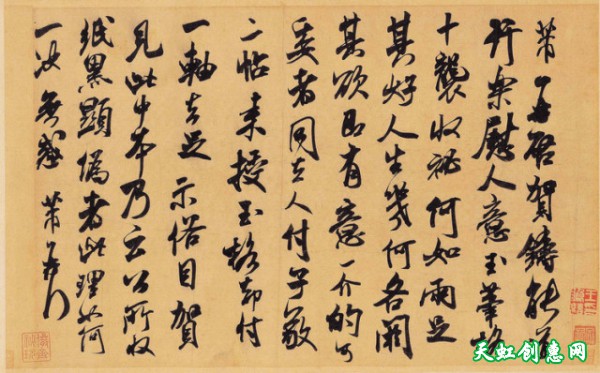 芾再啓賀鑄能道
行樂慰人意玉筆格
十襲收祕何如兩足
其好人生幾何各閼
其欲即有意一介的可
委者同去人付子敬
二帖來授玉格却付
一軸去足示俗目賀
見此中本乃云公所收
紙黑顯偽者此理如何
一決無惑 芾再行
天虹创意网